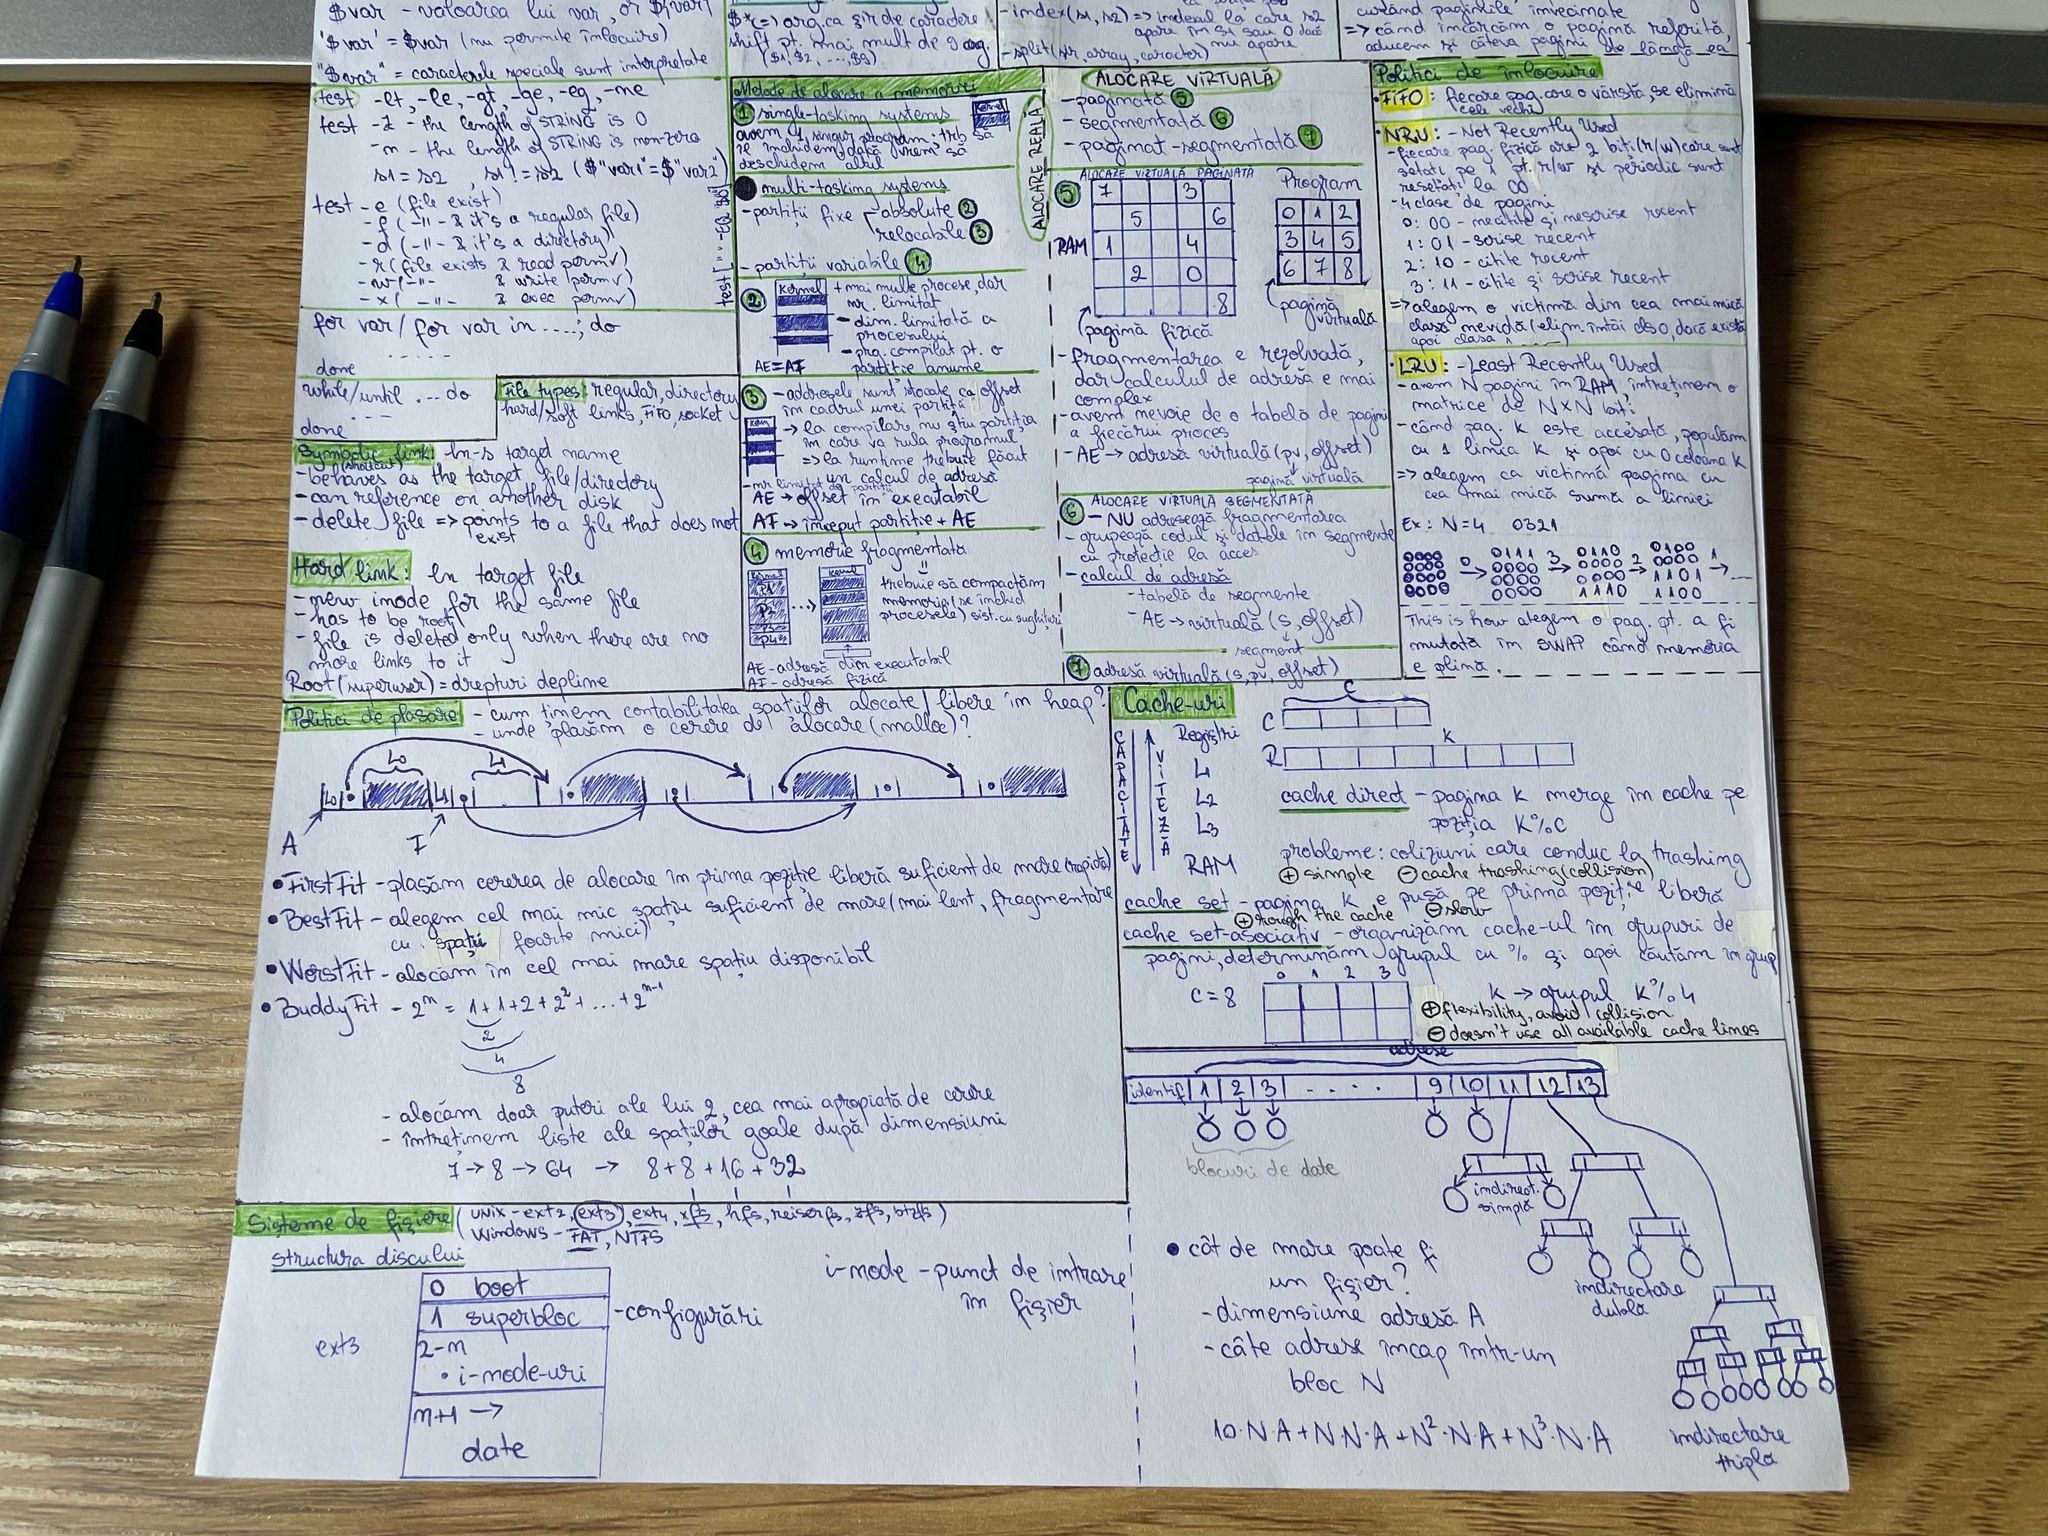 $var - valoarea lui var, or ${var}
'$var' = $var (nu permite înlocuire)
"$var" = caracterele speciale sunt interpretate
test -lt, -le, -gt, -ge, -eq, -ne
test -z - the length of STRING is 0
-n - the length of STRING is non-zero
s1 = s2, s1 != s2 ($"var1" = $"var2")
test -e (file exist)
-f (-"- & it's a regular file)
-d (-"- & it's a directory)
-r (file exists & read permv)
-w (-"- & write permv)
-x (-"- & exec permv)
for var / for var in ....; do
.....
done
while/until ... do
...
done
File types: regular, directory
hard/soft links, FIFO, socket
Symbolic link: ln -s target name
(shortcut)
- behaves as the target file/directory
- can reference on another disk
- delete file => points to a file that does not
exist
Hard link: ln target file
- new inode for the same file
- has to be root
- file is deleted only when there are no
more links to it
Root (superuser) = drepturi depline
$* (=) org. ca șir de caractere
shift pt. mai mult de 9 arg.
($1, $2, ..., $9)
- index(s1, s2) => indexul la care s2
apare în s1 sau 0 dacă
nu apare
- split(str, array, caracter)
paginile învecinate
=> când încărcăm o pagină referită,
aducem și câteva pagini de lângă ea
Metode de alocare a memoriei
1 single-tasking systems
kernel
avem 1 singur program; trb să
îl închidem dacă vrem să
deschidem altul
multi-tasking systems
- partiții fixe absolute 2
relocabile 3
- partiții variabile 4
ALOCARE REALĂ
2 Kernel
+ mai multe procese, dar
nr. limitat
- dim. limitată a
procesului
- prg. compilat pt. o
partiție anume
AE = AF
3 - addresele sunt stocate ca offset
în cadrul unei partiții
-> la compilare nu știu partiția
în care va rula programul
=> la runtime trebuie făcut
un calcul de adresă
- nr limitat de partiții
AE -> offset în executabil
AF -> început partiție + AE
4 memorie fragmentată
kernel
P4
...
kernel
trebuie să compactăm
memoria (se închid
procesele) sist. cu sughițuri
AE - adresă din executabil
AF - adresă fizică
ALOCARE VIRTUALĂ
- paginată 5
- segmentată 6
- paginat-segmentată 7
ALOCARE VIRTUALĂ PAGINATĂ
5
RAM
7 3
5 6
1 4
2 0
8
pagină fizică
Program
0 1 2
3 4 5
6 7 8
pagină
virtuală
- fragmentarea e rezolvată,
dar calculul de adresă e mai
complex
- avem nevoie de o tabelă de pagini
a fiecărui proces
- AE -> adresă virtuală (pv, offset)
pagină virtuală
6 ALOCARE VIRTUALĂ SEGMENTATĂ
- NU adresează fragmentarea
- grupează codul și datele în segmente
cu protecție la acces
- calcul de adresă
- tabelă de segmente
- AE -> virtuală (s, offset)
segment
7 adresă virtuală (s, pv, offset)
Politici de înlocuire
• FIFO: fiecare pag. are o vârstă, se elimină
cele vechi
• NRU: - Not Recently Used
- fiecare pag. fizică are 2 biți (r/w) care sunt
setați pe 1 pt. r/w și periodic sunt
resetați la 00
- 4 clase de pagini
0: 00 - necitite și nescrise recent
1: 01 - scrise recent
2: 10 - citite recent
3: 11 - citite și scrise recent
=> alegem o victimă din cea mai mică
clasă nevidă (elim. întâi cls 0, dacă există
apoi clasa 1 ....)
• LRU: - Least Recently Used
- avem N pagini în RAM, întreținem o
matrice de N×N biți
- când pag. K este accesată, populăm
cu 1 linia K și apoi cu 0 coloana K
=> alegem ca victimă pagina cu
cea mai mică sumă a liniei
Ex: N=4 0321
0000 0 0111 3 0110 2 0100 1
0000 -> 0000 -> 0000 -> 0000 -> ...
0000 0000 0000 1101
0000 0000 1110 1100
This is how alegem o pag. pt. a fi
mutată în SWAP când memoria
e plină.
Politici de plasare
- cum ținem contabilitatea spațiilor alocate/libere în heap?
- unde plasăm o cerere de alocare (malloc)?
L0 L1
L0 L1
A F
• FirstFit - plasăm cererea de alocare în prima poziție liberă suficient de mare (rapidă)
• BestFit - alegem cel mai mic spațiu suficient de mare (mai lent, fragmentare
cu spații foarte mici)
• WorstFit - alocăm în cel mai mare spațiu disponibil
• BuddyFit - 2^n = 1+1+2+2^2+...+2^n-1
2
4
8
- alocăm doar puteri ale lui 2, cea mai apropiată de cerere
- întreținem liste ale spațiilor goale după dimensiuni
7 -> 8 -> 64 -> 8+8+16+32
Cache-uri
CAPACITATE
VITEZĂ
Regiștri
L1
L2
L3
RAM
C
C
K
R
cache direct - pagina K merge în cache pe
poziția K%C
probleme: coliziuni care conduc la trashing
+ simple - cache trashing (collision)
cache set - pagina K e pusă pe prima poziție liberă
+ trough the cache - slow
cache set-asociativ - organizăm cache-ul în grupuri de
pagini, determinăm grupul cu % și apoi căutăm în grup
0 1 2 3
C = 8
K -> grupul K%4
+ flexibility, avoid collision
- doesn't use all available cache lines
adrese
identif 1 2 3 .... 9 10 11 12 13
blocuri de date
indirect.
simplă
indirectare
dublă
indirectare
triplă
• cât de mare poate fi
un fișier?
- dimensiune adresă A
- câte adrese încap într-un
bloc N
10·N·A + N·N·A + N²·N·A + N³·N·A
Sisteme de fișiere (unix - ext2, ext3, ext4, xfs, hfs, reiserfs, zfs, btrfs)
Windows - FAT, NTFS
Structura discului
ext3
0 boot
1 superbloc
- configurări
2-n
• i-node-uri
n+1 ->
date
i-node - punct de intrare
în fișier